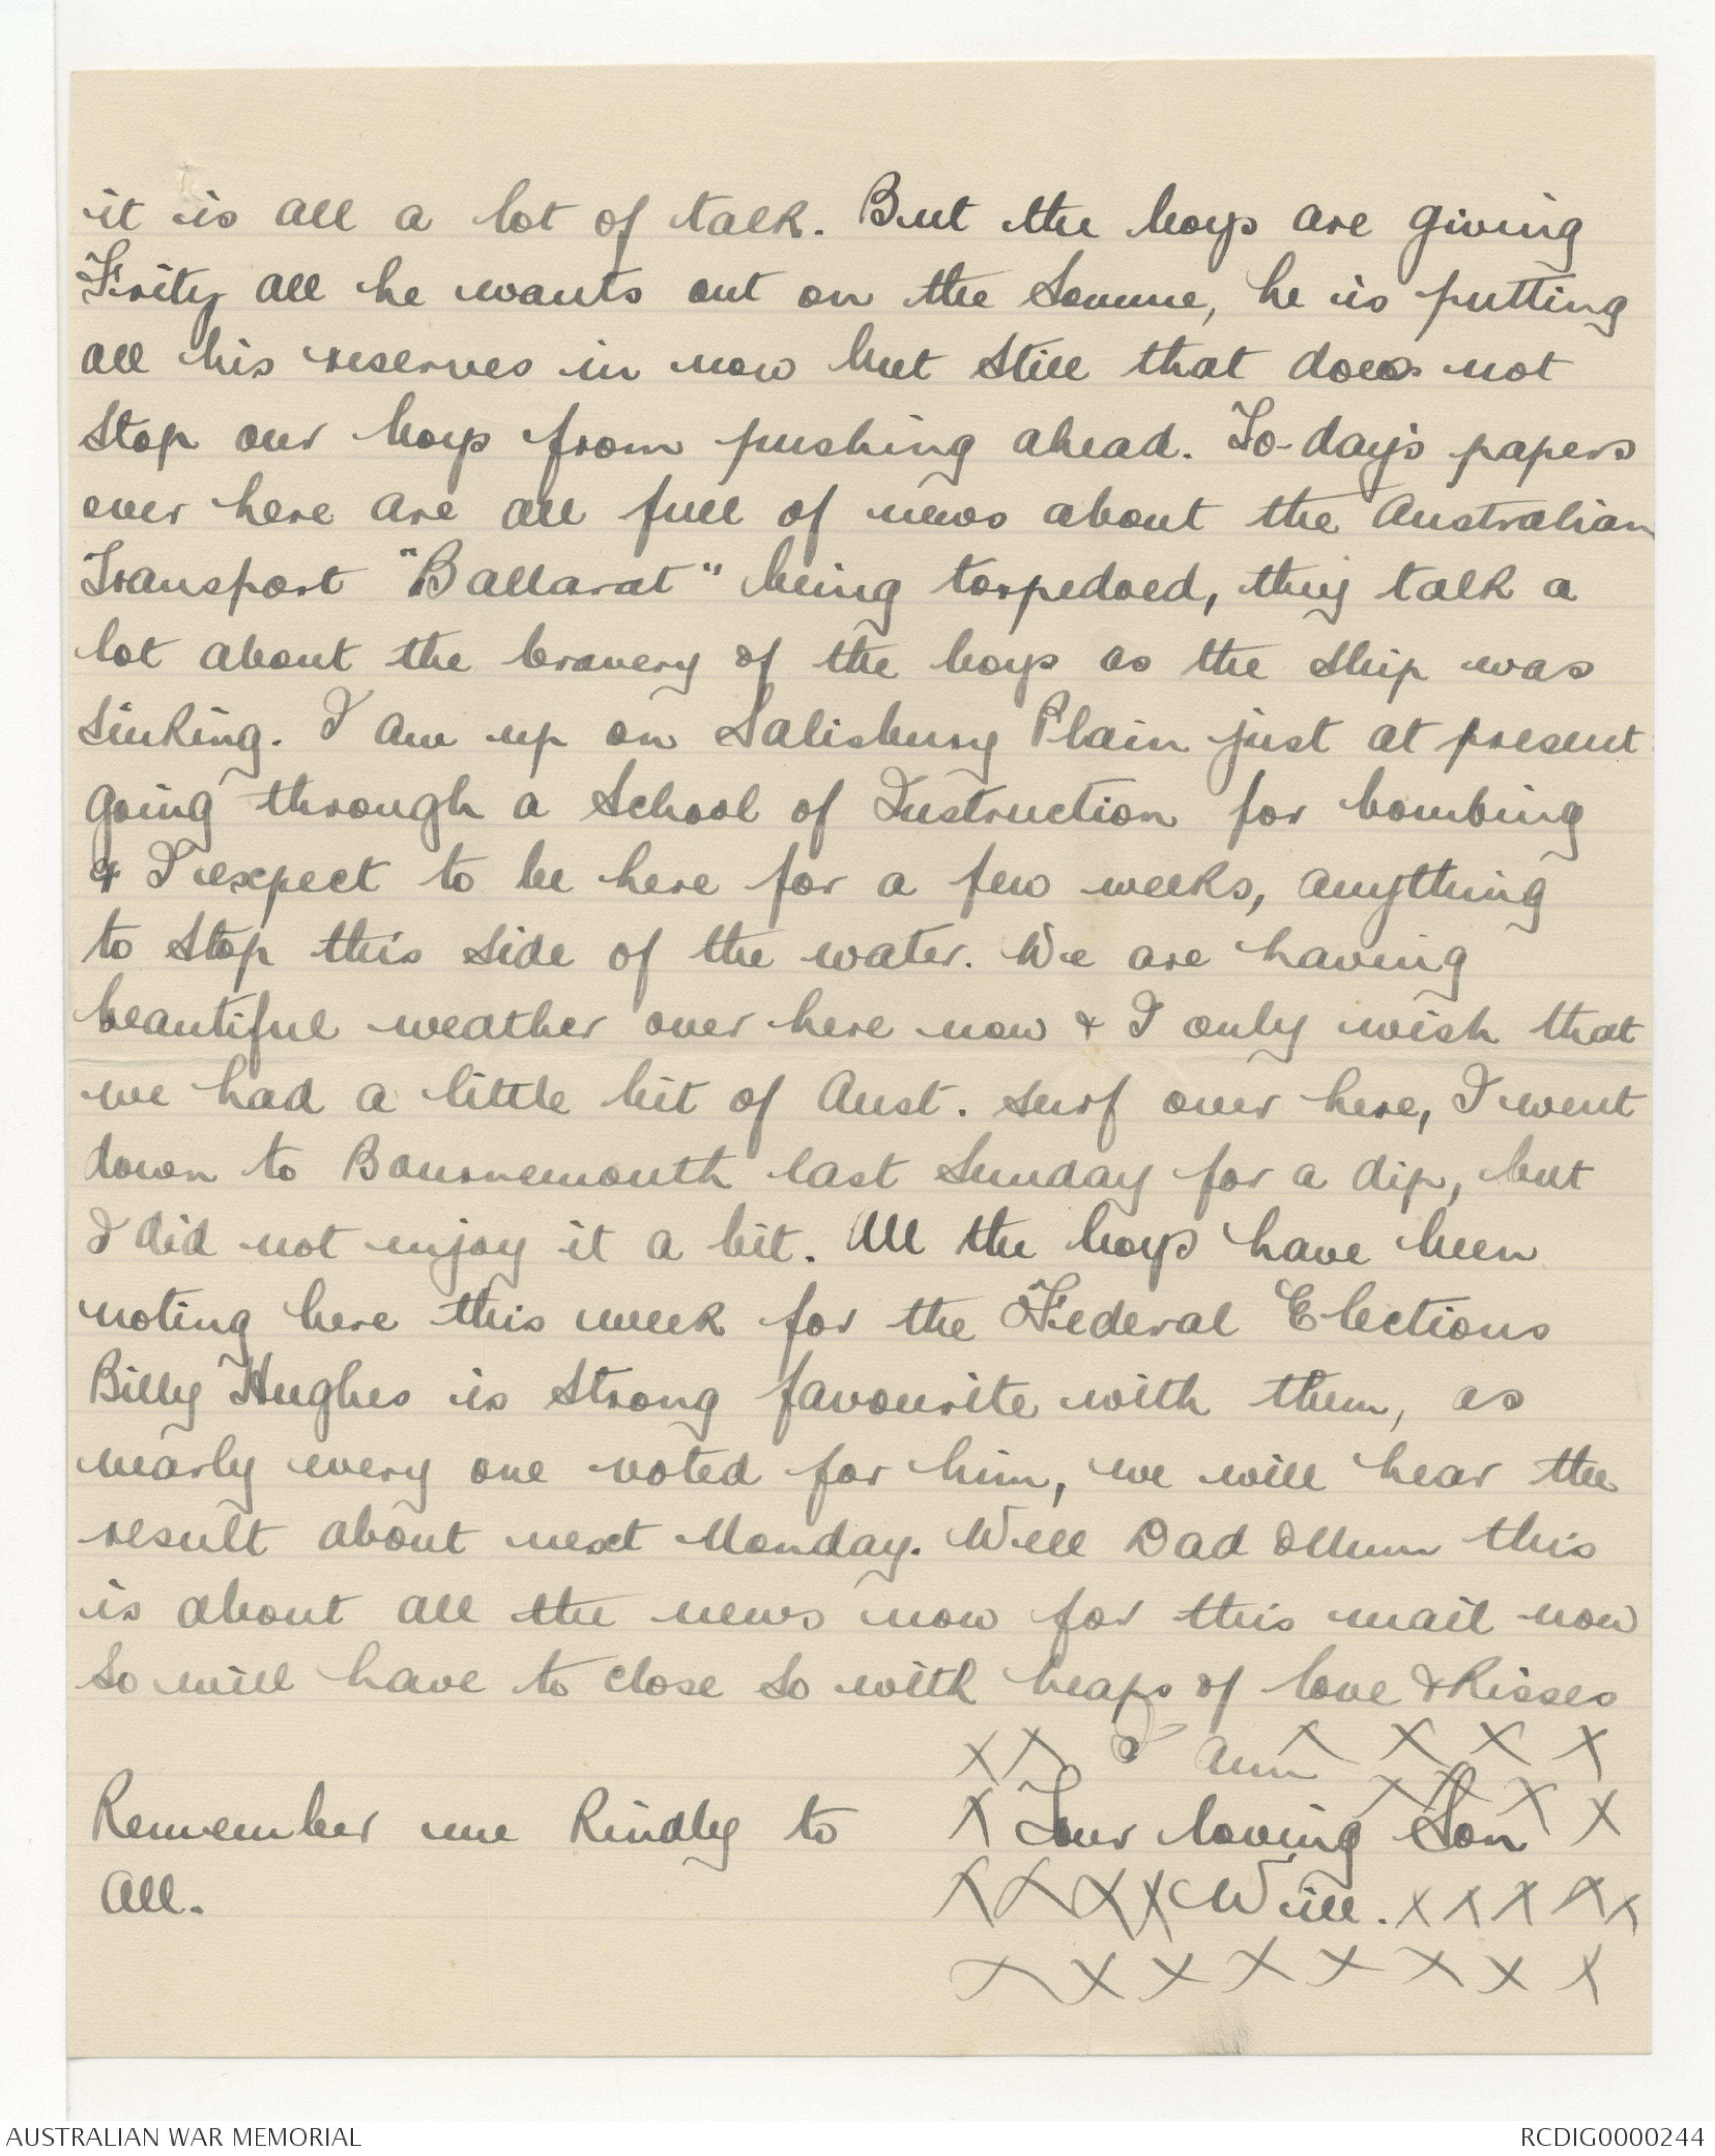 it is all a lot of talk. But the boys are giving
Fritz all he wants out on the Somme, he is putting
all his reserves in now but still that does not
stop our boys from pushing ahead. To-day's papers
over here are all full of news about the Australian
Transport "Ballarat" being torpedoed, they talk a
lot about the bravery of the boys as the ship was
sinking. I am up on Salisbury Plain just at present
going through a School of Instruction for bombing
& I expect to be here for a few weeks, anything
to stop this side of the water. We are having
beautiful weather over here now & I only wish that
we had a little bit of Aust. surf over here, I went
down to Bournemouth last Sunday for a dip, but
I did not enjoy it a bit. All the boys have been
voting here this week for the Federal Elections
Billy Hughes is strong favourite with them, as
nearly every one voted for him, we will hear the
result about next Monday. Well Dad & Mum this
is about all the news now for this mail now
so will have to close so with heaps of love & kisses
X X I am X X X X
Remember me kindly to X Your loving Son X X
All. X X X X Will. X X X X X
X X X X X X X X
AUSTRALIAN WAR MEMORIAL RCDIG0000244